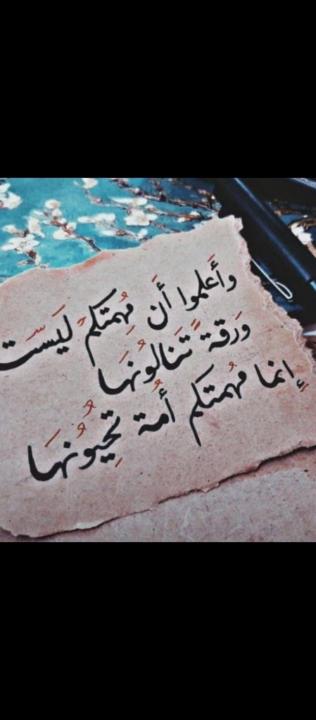 وأَعلموا أَن مُهِمتكمُ ليَسَت
وَرقة تَنالُونهَا
إِنما مهُمتكم أُمة تحُيِوُنهَا